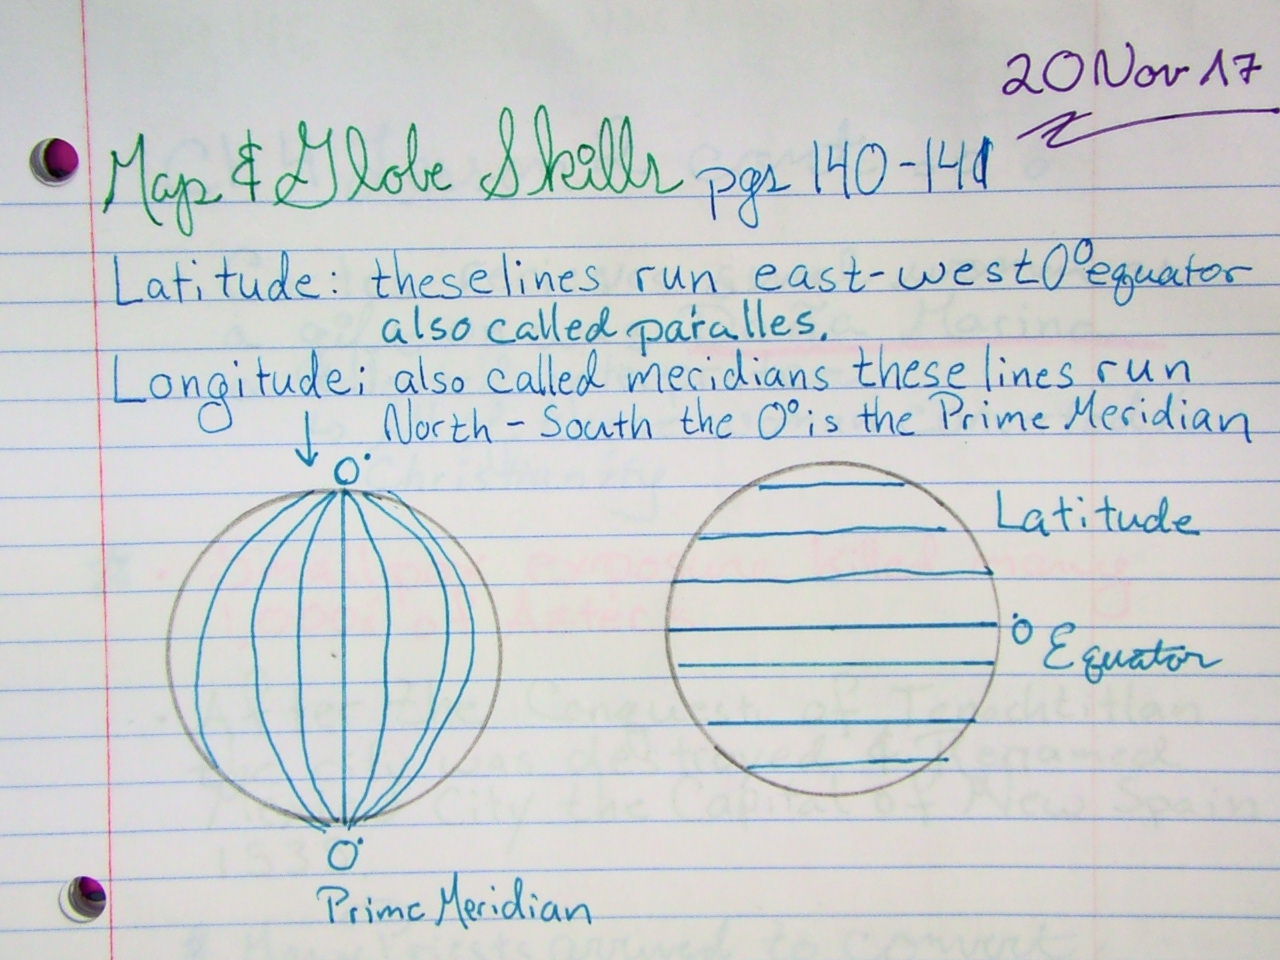 20 Nov 17
Map & Globe Skills pgs 140-141
Latitude: these lines run east-west 0° equator
also called paralles.
Longitude; also called meridians these lines run
North - South the 0° is the Prime Meridian
0°
Latitude
0° Equator
0°
Prime Meridian